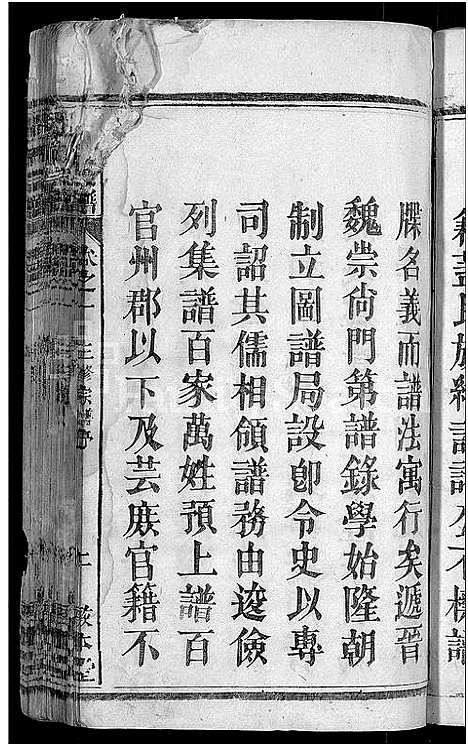 牒名義而譜法寓行矣遞晉
魏崇尙門第譜錄學始隆朝
制立圖譜局設卽令史以專
司詔其儒相領譜務由逡儉
列集譜百家萬姓預上譜百
官州郡以下及芸庻官籍不
譜 卷之一 三修宗譜序